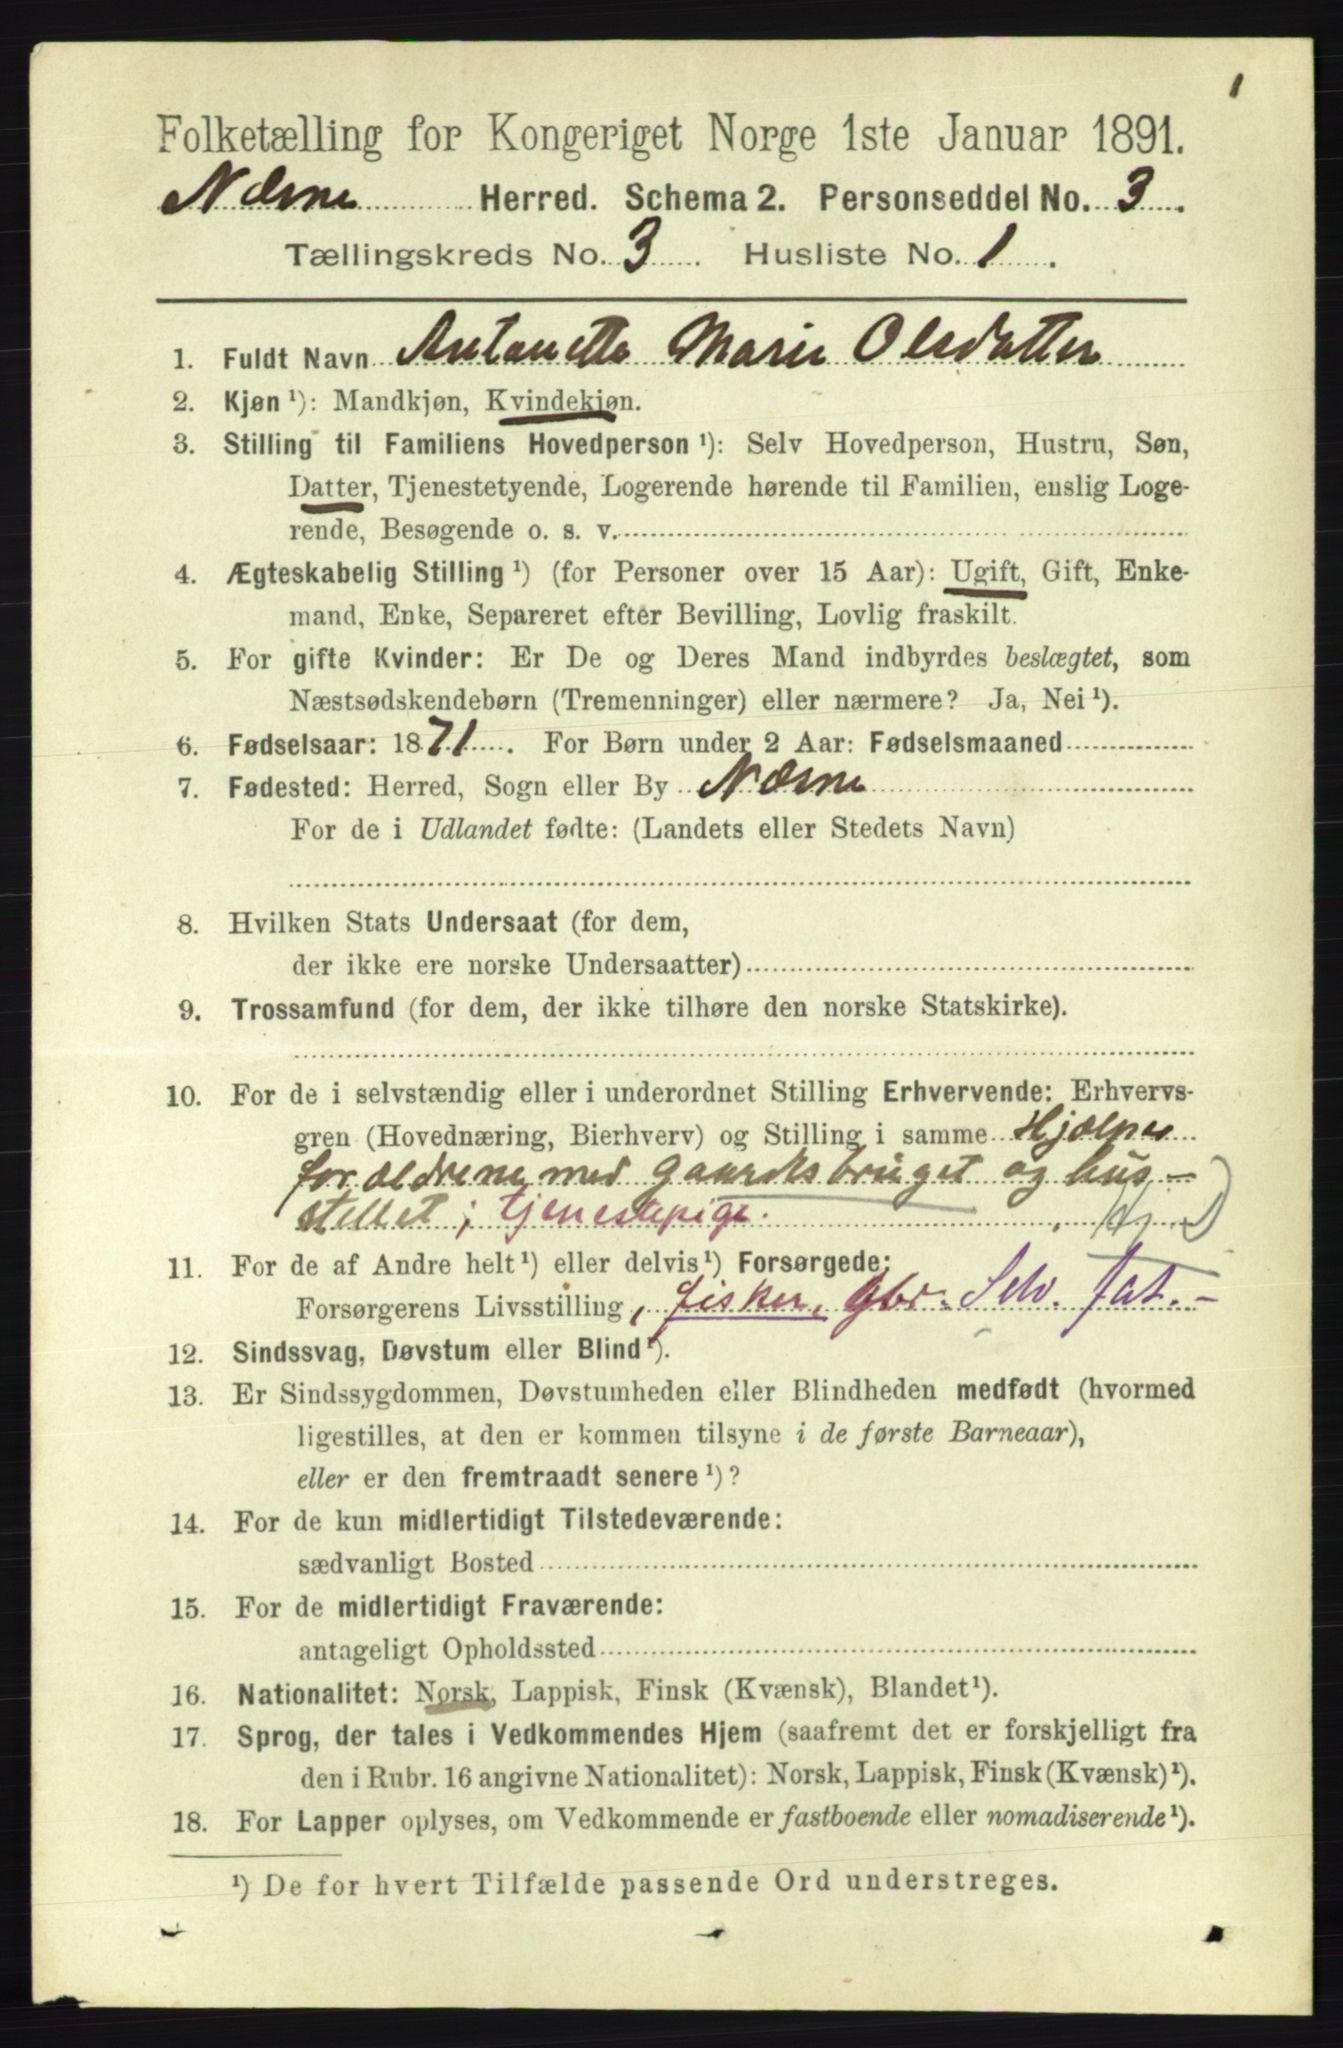 1
Folketælling for Kongeriget Norge 1ste Januar 1891.
Næsne Herred. Schema 2. Personseddel No. 3.
Tællingskreds No. 3. Husliste No. 1.
1. Fuldt Navn Antonette Marie Olsdatter
2. Kjøn ¹): Mandkjøn, Kvindekjøn.
3. Stilling til Familiens Hovedperson ¹): Selv Hovedperson, Hustru, Søn,
Datter, Tjenestetyende, Logerende hørende til Familien, enslig Loge-
rende, Besøgende o. s. v.
4. Ægteskabelig Stilling ¹) (for Personer over 15 Aar): Ugift, Gift, Enke-
mand, Enke, Separeret efter Bevilling, Lovlig fraskilt.
5. For gifte Kvinder: Er De og Deres Mand indbyrdes beslægtet, som
Næstsødskendebørn (Tremenninger) eller nærmere? Ja, Nei ¹).
6. Fødselsaar: 1871. For Børn under 2 Aar: Fødselsmaaned
7. Fødested: Herred, Sogn eller By Næsne
For de i Udlandet fødte: (Landets eller Stedets Navn)
8. Hvilken Stats Undersaat (for dem,
der ikke ere norske Undersaatter)
9. Trossamfund (for dem, der ikke tilhøre den norske Statskirke).
10. For de i selvstændig eller i underordnet Stilling Erhvervende: Erhvervs-
gren (Hovednæring, Bierhverv) og Stilling i samme Hjælper
forældrene med gaardsbruget og hus-
stellet; tjenestepige.
11. For de af Andre helt ¹) eller delvis ¹) Forsørgede:
Forsørgerens Livsstilling, fisker, gbr. Selv. Fat. -
12. Sindssvag, Døvstum eller Blind ¹).
13. Er Sindssygdommen, Døvstumheden eller Blindheden medfødt (hvormed
ligestilles, at den er kommen tilsyne i de første Barneaar),
eller er den fremtraadt senere ¹)?
14. For de kun midlertidigt Tilstedeværende:
sædvanligt Bosted
15. For de midlertidigt Fraværende:
antageligt Opholdssted
16. Nationalitet: Norsk, Lappisk, Finsk (Kvænsk), Blandet ¹).
17. Sprog, der tales i Vedkommendes Hjem (saafremt det er forskjelligt fra
den i Rubr. 16 angivne Nationalitet): Norsk, Lappisk, Finsk (Kvænsk) ¹).
18. For Lapper oplyses, om Vedkommende er fastboende eller nomadiserende ¹).
¹) De for hvert Tilfælde passende Ord understreges.